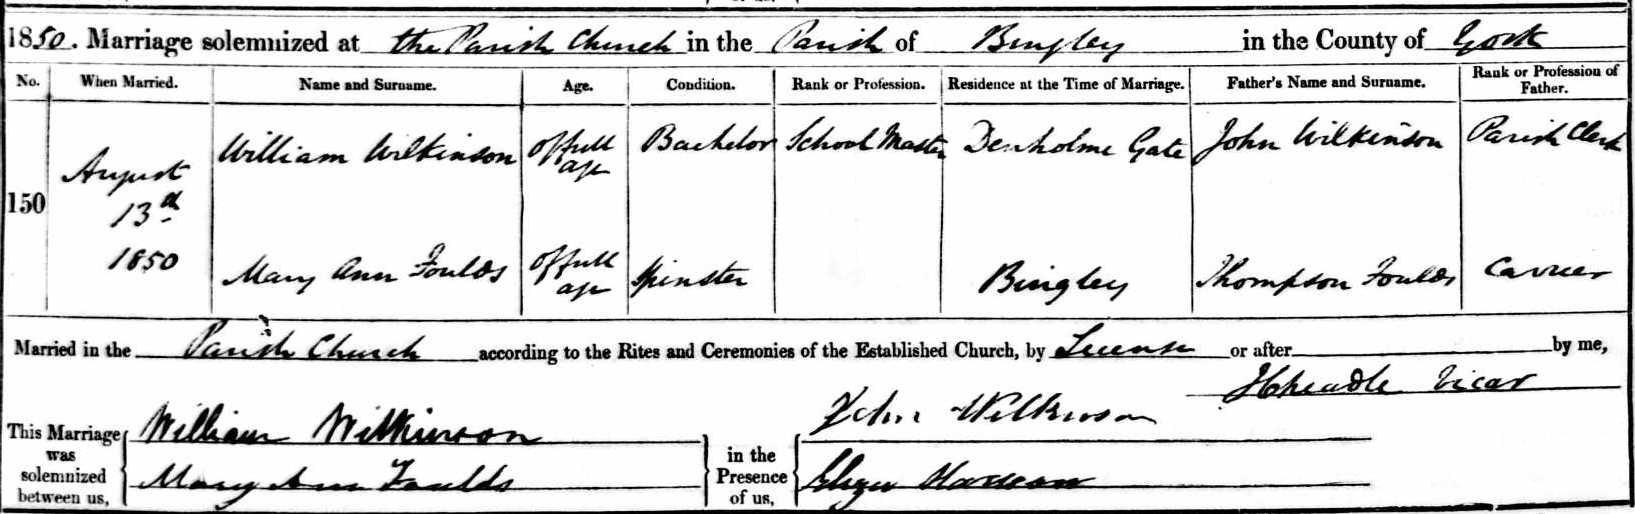 1850. Marriage solemnized at the Parish Church in the Parish of Bingley in the County of York
No. When Married. Name and Surname. Age. Condition. Rank or Profession. Residence at the Time of Marriage. Father's Name and Surname. Rank or Profession of Father.
150 August 13th 1850 William Wilkinson of full age Bachelor School Master Denholme Gate John Wilkinson Parish Clerk
Mary Ann Foulds of full age Spinster Bingley Thompson Foulds Carrier
Married in the Parish Church according to the Rites and Ceremonies of the Established Church, by License or after by me,
Cheadle Vicar
This Marriage was solemnized between us, William Wilkinson in the Presence of us, John Wilkinson
Mary Ann Foulds